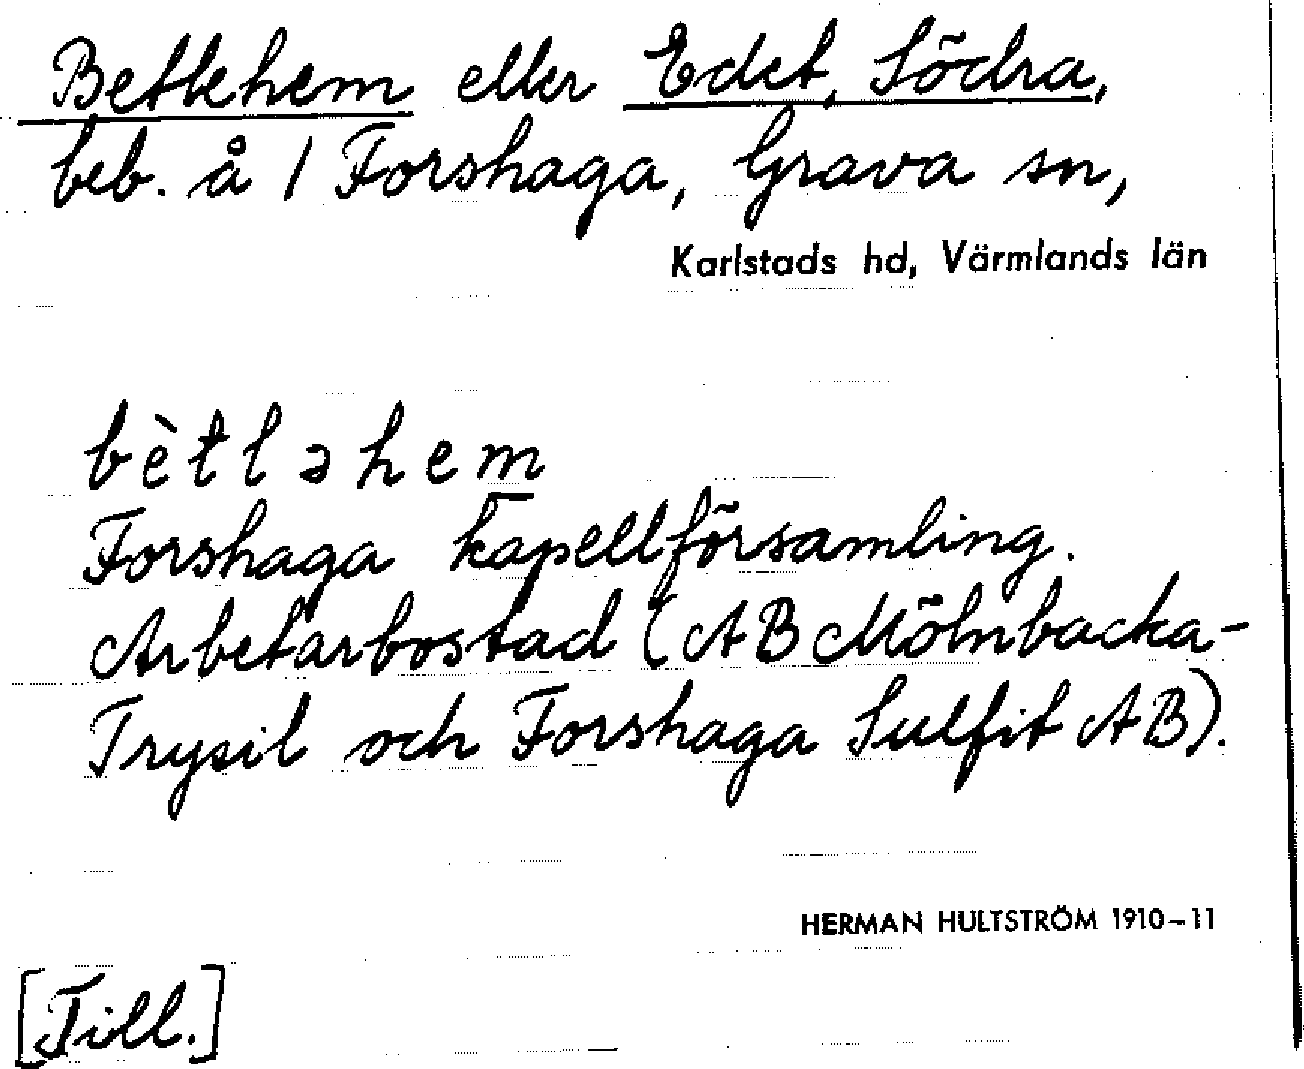 Betlehem eller Edet, Södra,
beb. å 1 Forshaga, Grava sn,
Karlstads hd, Värmlands län
bètləhem
Forshaga kapellförsamling.
Arbetarbostad (AB Mölnbacka-
Trysil och Forshaga Sulfit AB).
HERMAN HULTSTRÖM 1910-11
[Till.]